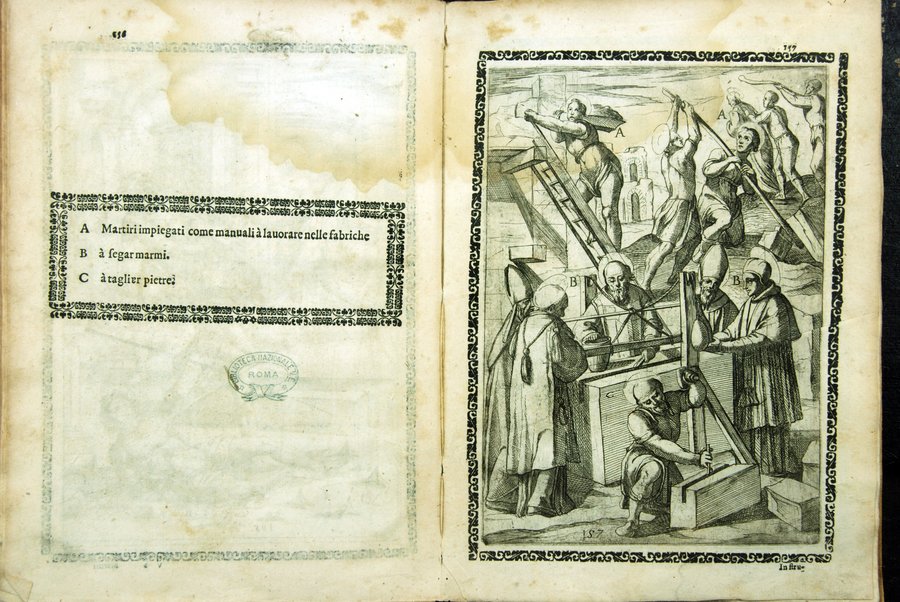 156
A Martiri impiegati come manuali à lauorare nelle fabriche
B à segar marmi.
C à tagliar pietre.
BIBLIOTECA NAZIONALE V.E.
ROMA
157
A
A
B
B
C
157
In stru-